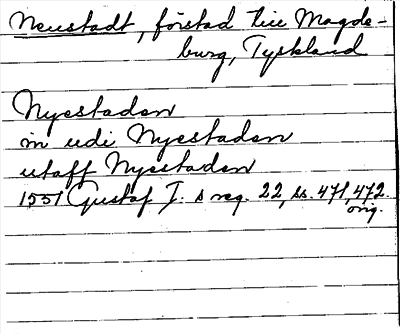 Neustadt, förstad till Magde-
burg, Tyskland
Nyestaden
in udi Nyestaden
utaff Nyestaden
1551 Gustaf I:s reg. 22, ss. 471, 472.
orig.